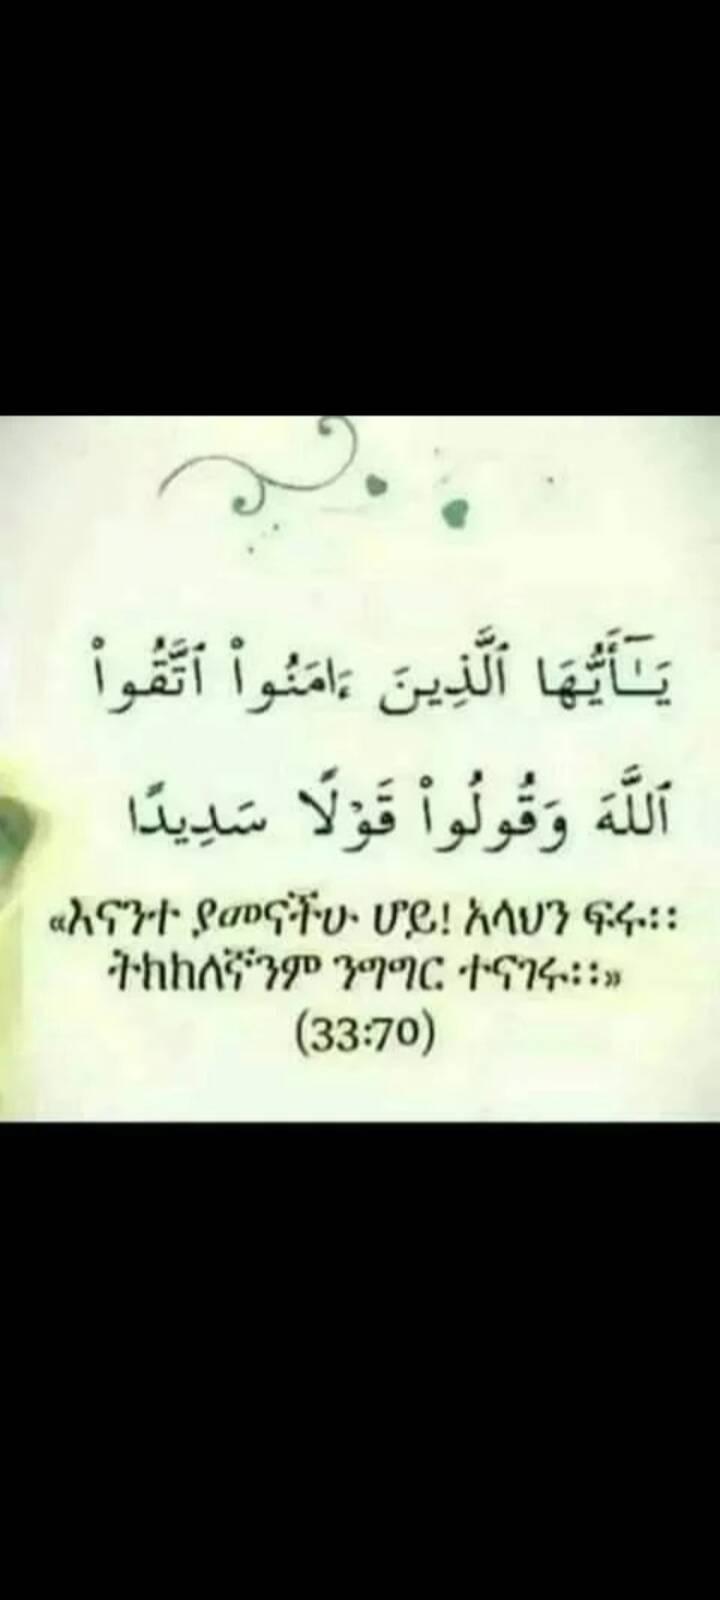 يَـٰٓأَيُّهَا ٱلَّذِينَ ءَامَنُوا۟ ٱتَّقُوا۟
ٱللَّهَ وَقُولُوا۟ قَوْلًا سَدِيدًا
«እናንተ ያመናችሁ ሆይ! አላህን ፍሩ፡፡
ትክክለኛንም ንግግር ተናገሩ፡፡»
(33:70)